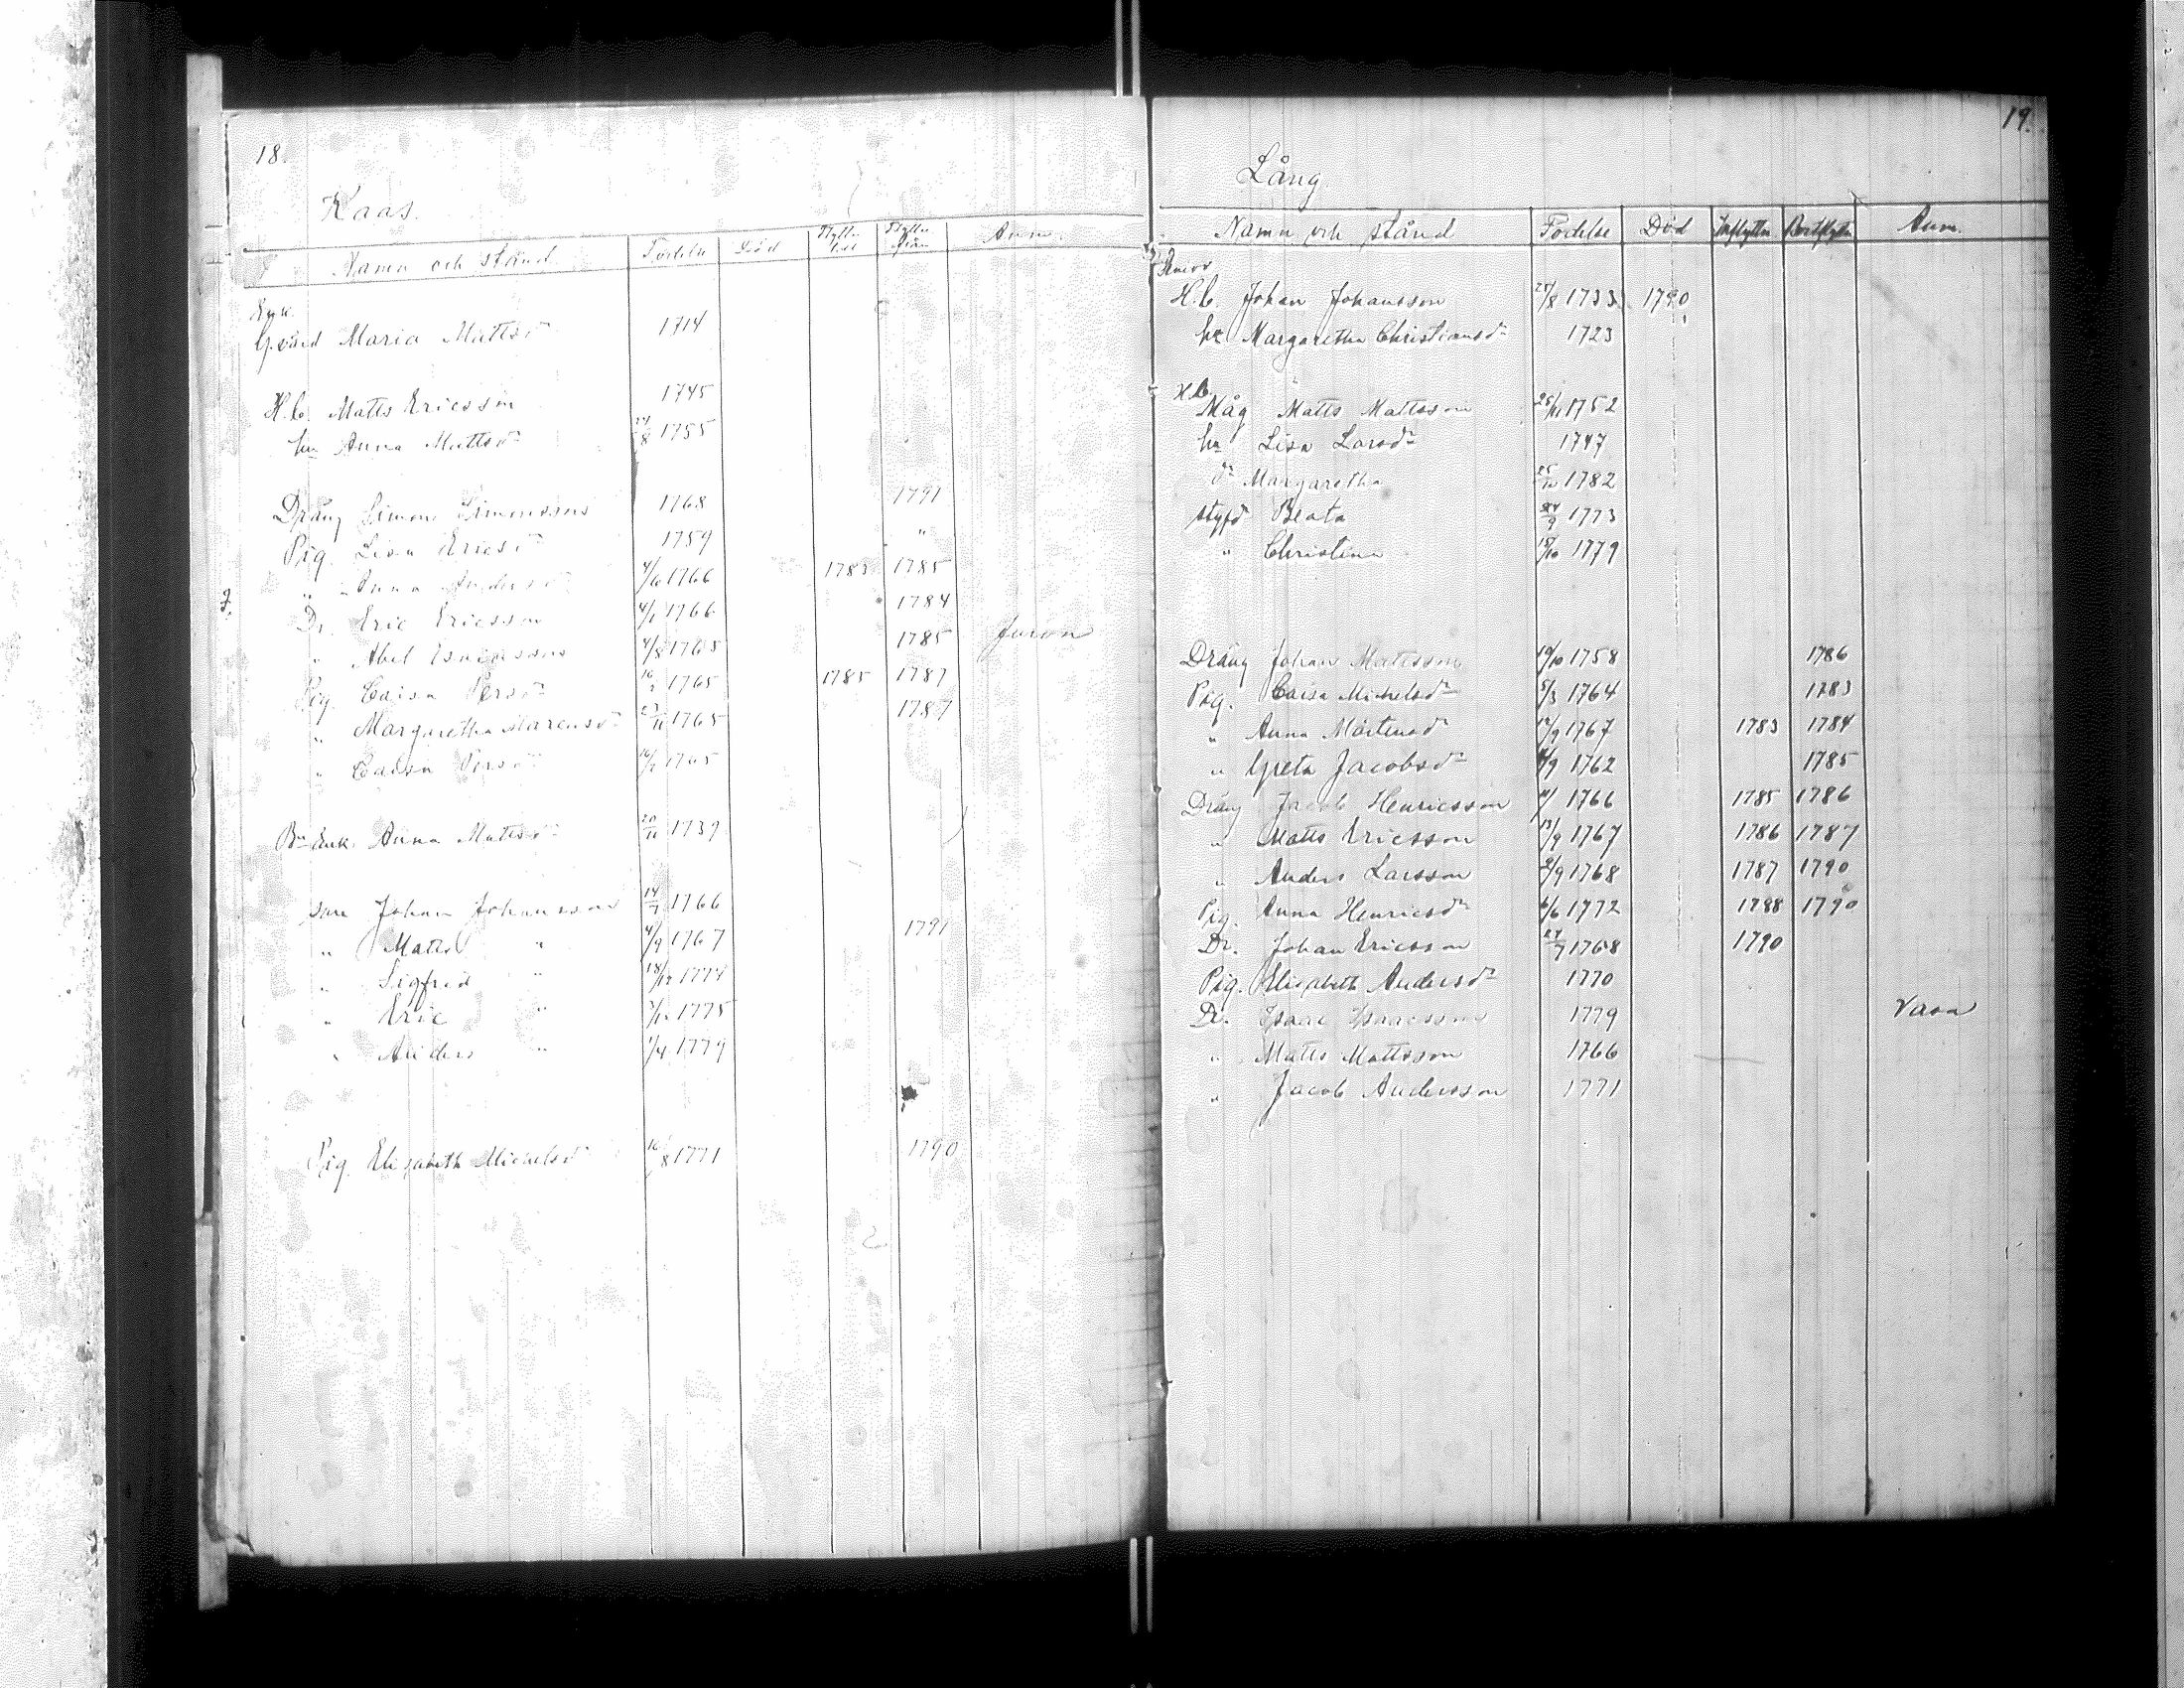 18.
Kaas.
Namn och stånd Födelse Död Flytt. till Flytt. från Anm.
Enk.
G.värd Maria Mattsdr 1714
H.b. Matts Ericsson 1745
hu Anna Mattsdr 24/8 1755
Dräng Simon Simonsson 1768 1791
Pig. Lisa Ericsdr 1759 "
" Anna Andersdr 4/6 1766 1783 1785
Dr. Eric Ericsson 4/1 1766 1784
" Abel 4/8 1765 1785
Pig. Caisa Persdr 16/2 1765 1785 1787
" Margaretha Marcusdr 23/11 1765 1787
" Caisa Persdr 16/2 1765
Bn Enk. Anna Mattsdr 20/11 1739
son Johan Johansson 14/7 1766
" Matts " 4/9 1767 1791
" Sigfred " 18/12 1774
" Eric " 1775
" Anders " 1/4 1779
Pig. Elisabeth Michelsdr 16/8 1771 1790
19.
Lång
Namn och stånd Födelse Död Inflyttn Bortflyttn Anm.
H.b. Johan Johansson 27/8 1733 1790
hu Margaretha Christiansdr 1723
H.b.
Måg Matts Mattsson 25/11 1752
hu Lisa Larsdr 1747
dr Margaretha 25/10 1782
styfd Beata 24/9 1773
" Christina 15/10 1779
Dräng Johan Mattsson 19/10 1758 1786
Pig. Caisa Michelsdr 5/3 1764 1783
" Anna Mårtensdr 12/9 1767 1783 1784
" Greta Jacobsdr 1762 1785
Dräng Jacob Henricsson 1766 1785 1786
" Matts Ericsson 13/9 1767 1786 1787
" Anders Larsson 2/9 1768 1787 1790
Pig. Anna Henricsdr 6/6 1772 1788 1790
Dr. Johan Ericsson 24/7 1768 1790
Pig. Elisabeth Andersdr 1770
Dr. Isaac Isaacsson 1779 Vasa
" Matts Mattsson 1766
" Jacob Andersson 1771